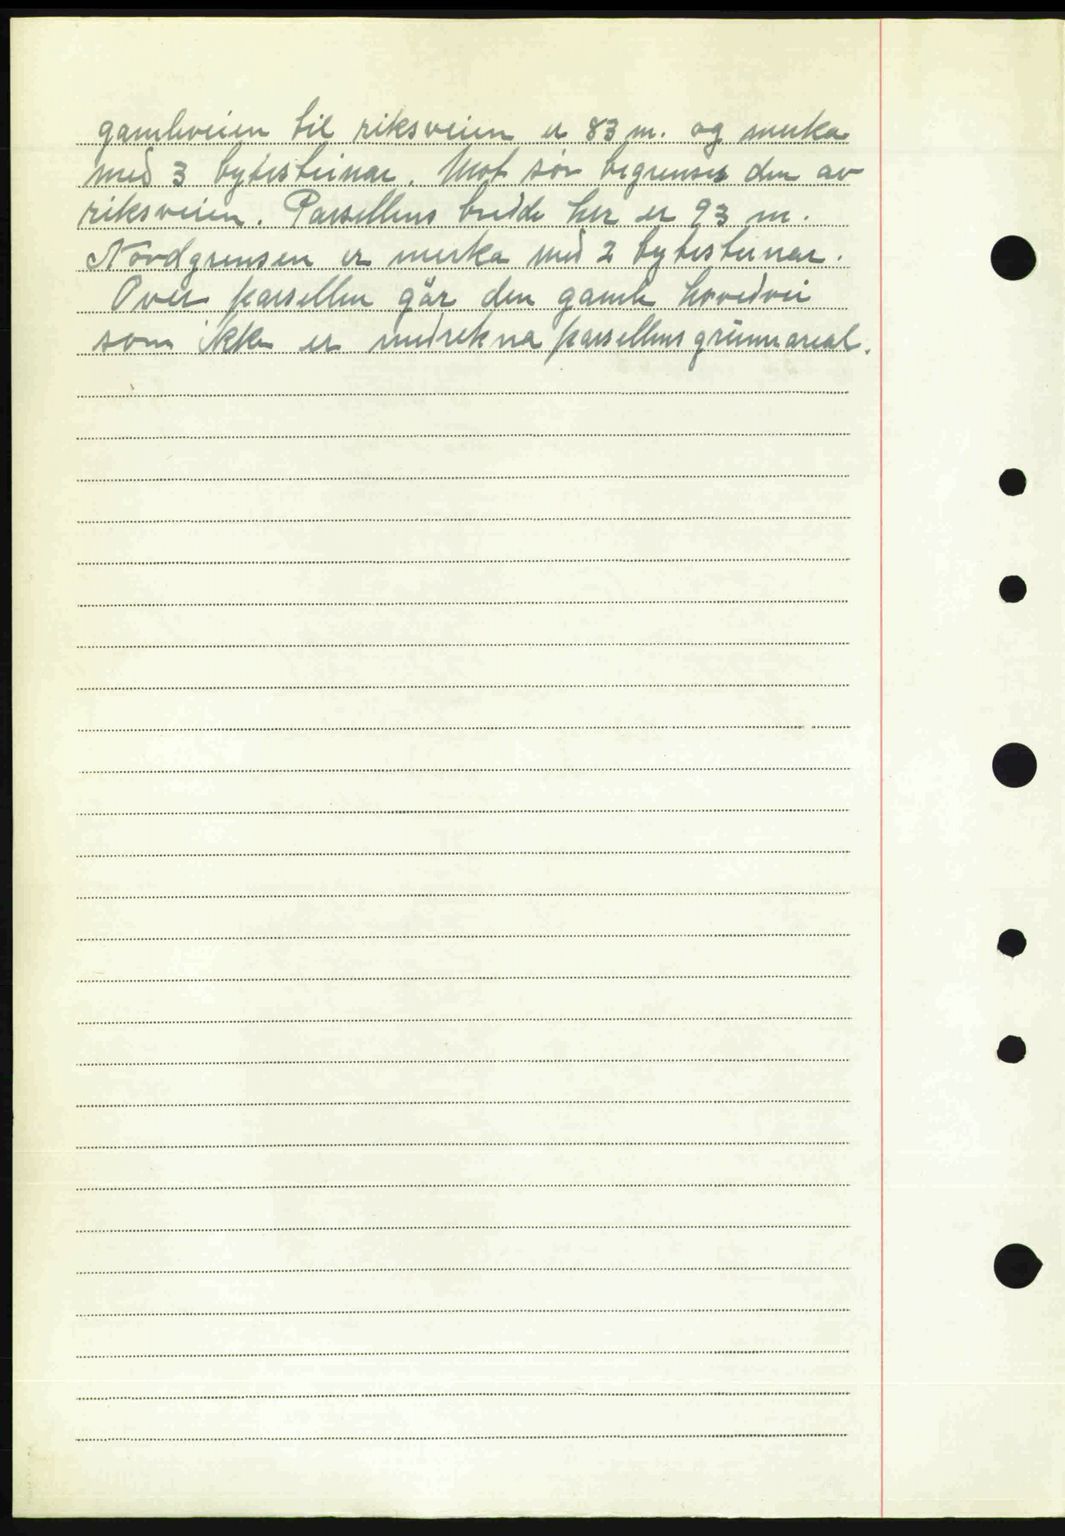 gamleveien til riksveien er 83 m. og merka
med 3 bytesteinar. Mot sør begrenses den av
riksveien. Parsellens bredde her er 93 m.
Nordgrensen er merka med 2 bytesteinar.
Over parsellen går den gamle hovedvei
som ikke er medrekna parsellens grunnareal.